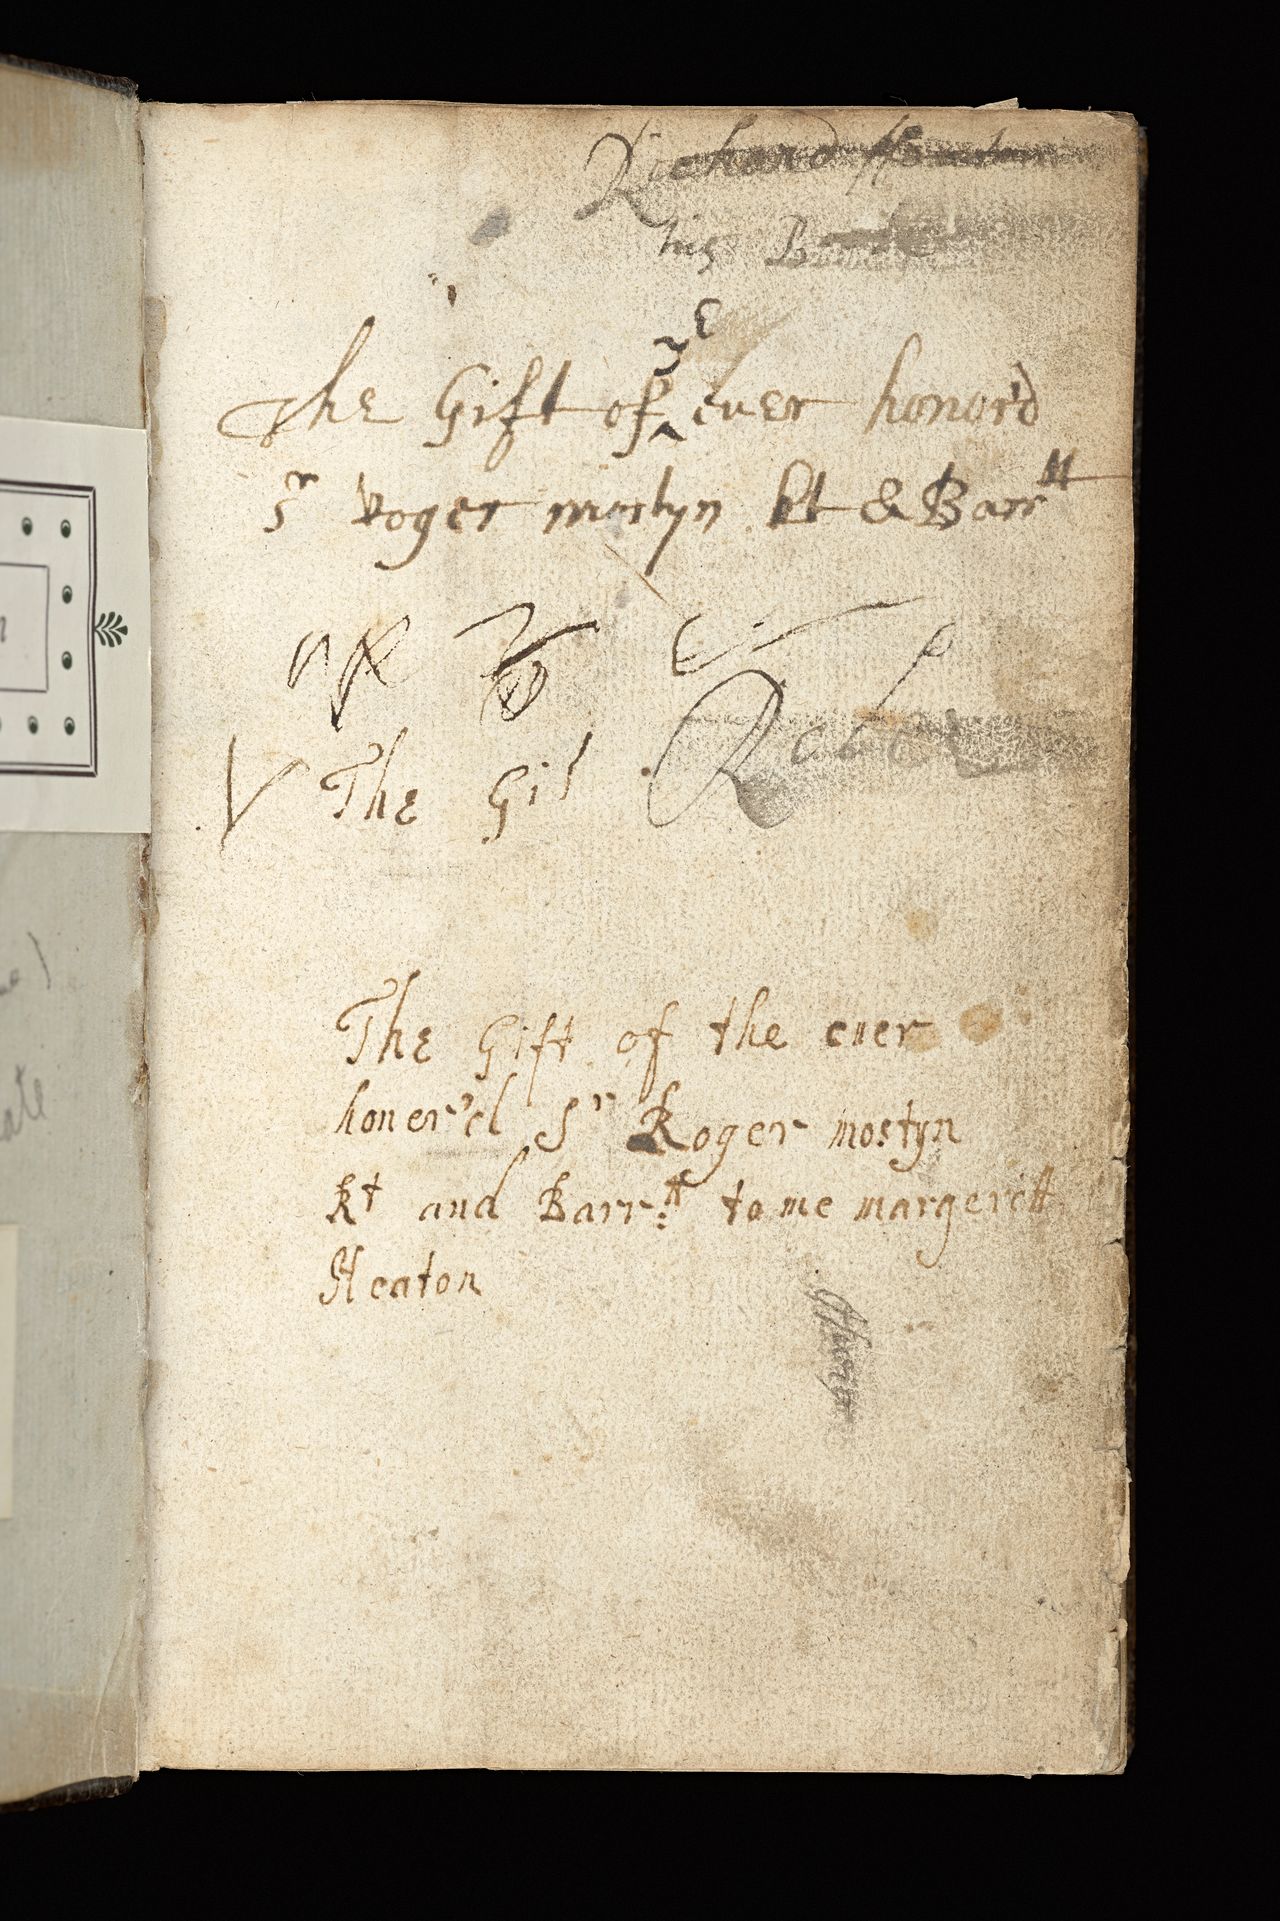 Richard
his
The Gift of yͤ euer honor'd
Sr Roger mostyn kt & Barrtt
The Gif
The Gift of the euer
honer'd Sr Roger mostyn
Kt and Barr:tt to me margerett
Heaton